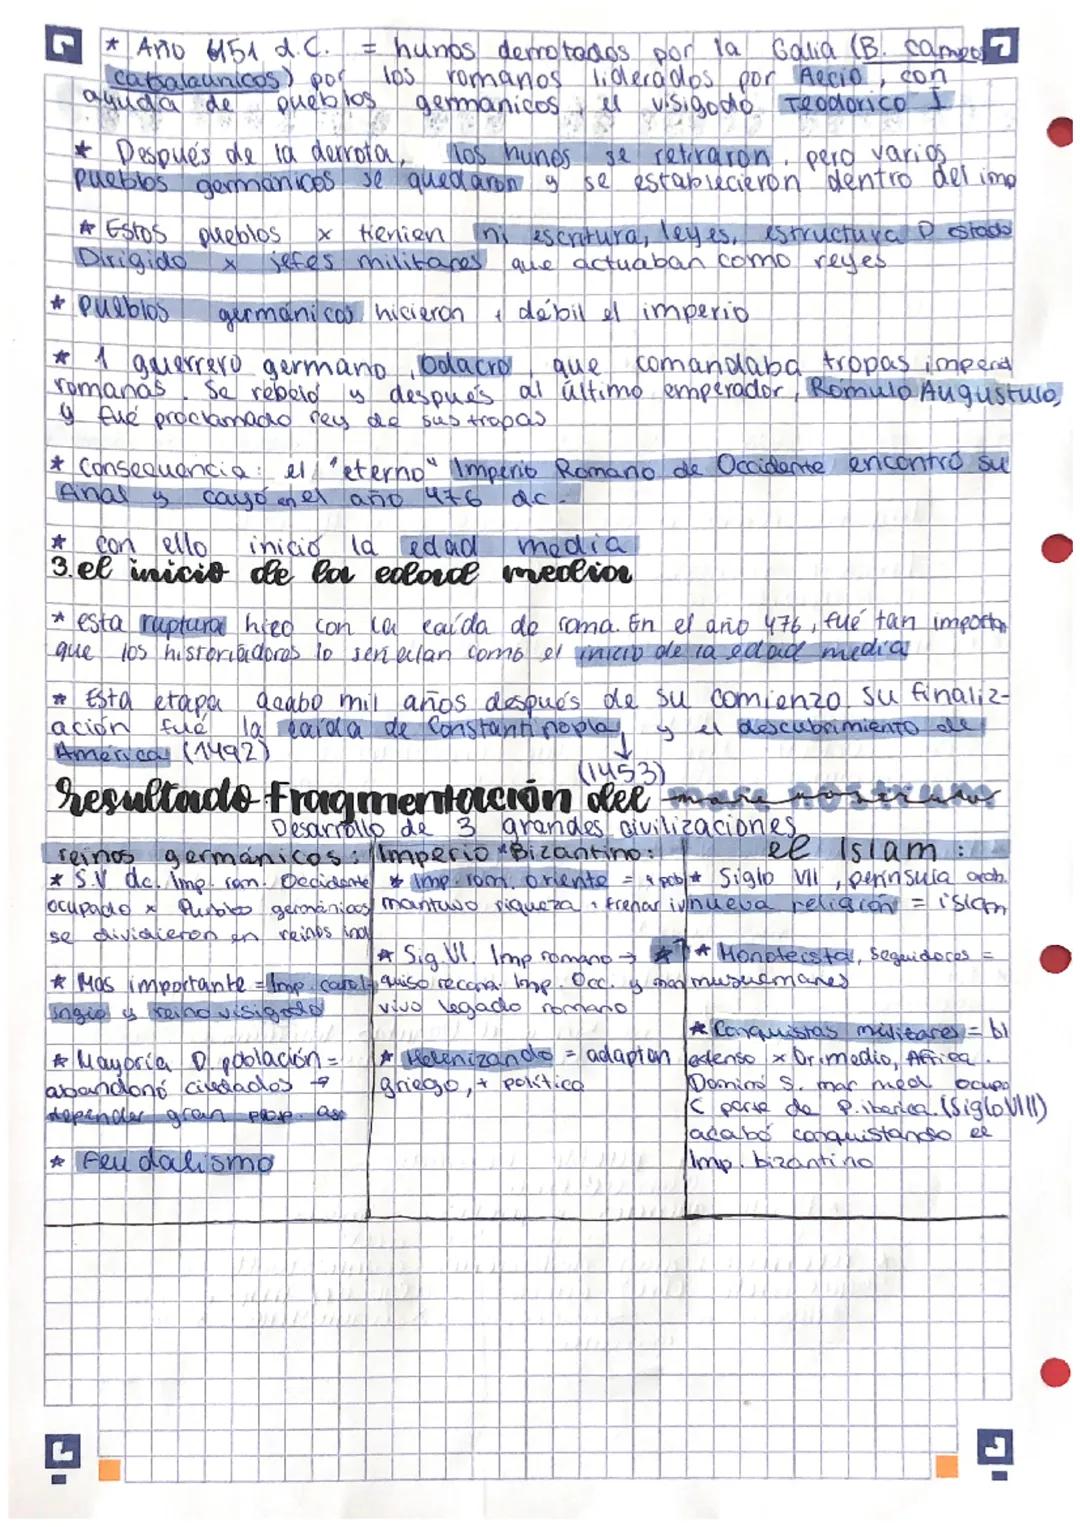 * Año 451 d.C. = hunos derrotados por la Galia (B. campos
catalaunicos) por los romanos liderados por Aecio, con
ayuda de pueblos germanicos, el visigodo Teodorico I
* Después de la derrota, los hunos se retiraron, pero varios
pueblos germanicos se quedaron y se establecieron dentro del imp
* Estos pueblos x tienien ni escritura, leyes, estructura D estado
Dirigido x jefes militares que actuaban como reyes
* pueblos germánicos hicieron + débil el imperio
* 1 guerrero germano, Odacro, que comandaba tropas imperia
romanas. Se rebeló y después al último emperador, Rómulo Augustulo,
y fué proclamado rey de sus tropas
* Consecuencia: el "eterno" Imperio Romano de Occidente encontró su
final y cayó en el año 476 dc.
* con ello inició la edad media
3. el inicio de la edad media
* esta ruptura hizo con la caída de roma. En el año 476, fué tan importan
que los historiadores lo señalan como el inicio de la edad media
* Esta etapa acabo mil años después de su comienzo. Su finaliz-
ación fué la caída de Constantinopla, y el descubrimiento de
América (1492)
(1453)
Resultado Fragmentación del mare nostrum
Desarrollo de 3 grandes civilizaciones
reinos germánicos: Imperio Bizantino: el Islam:
* S.V dc. Imp. rom. Occidente
ocupado x Pueblos germánicos
se dividieron en reinos ind
* Mas importante = Imp. carol
ingio y reino visigodo
* Mayoría D. población =
abandonó ciudades →
depender gran prop. as
* Feudalismo
* Imp. rom. oriente = + pob
mantuvo riqueza + frenar in
* Sig VI. Imp romano →
quiso recons. Imp. Occ. y man
vivo legado romano
* Helenizando = adaptan
griego, + política
* Siglo VII, península arab.
nueva religión = islam
* Monoteista, Seguidores =
musulmanes
* Conquistas militares = bl
extenso x Or. medio, África.
Dominó S. mar med ocupa
C parte de P. iberica. (Siglo VIII)
acabó conquistando el
Imp. bizantino